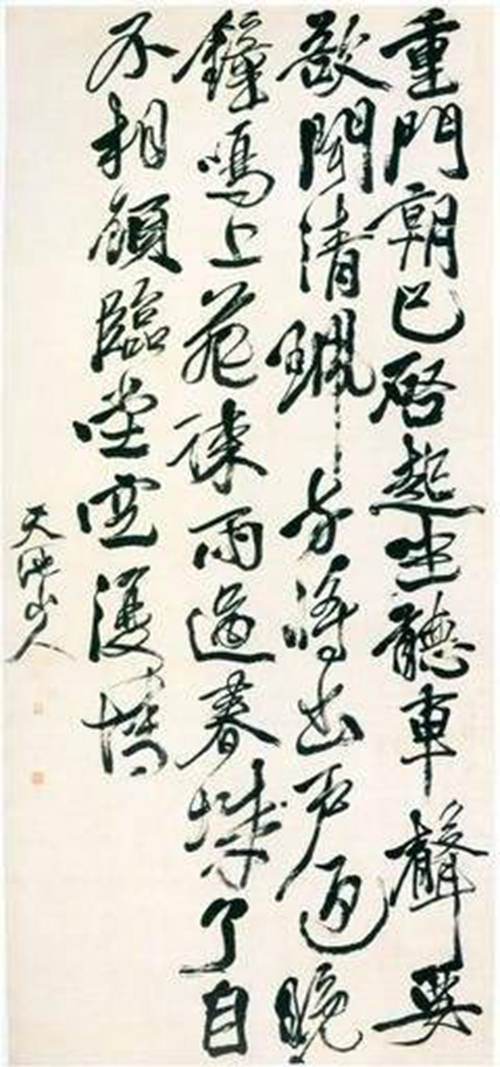 重門朝已啓起坐聽車聲要
欲聞清珮方將出戶迎晚
鐘鳴上苑疎雨過春城了自
不相顧臨堂空復情
天池山人